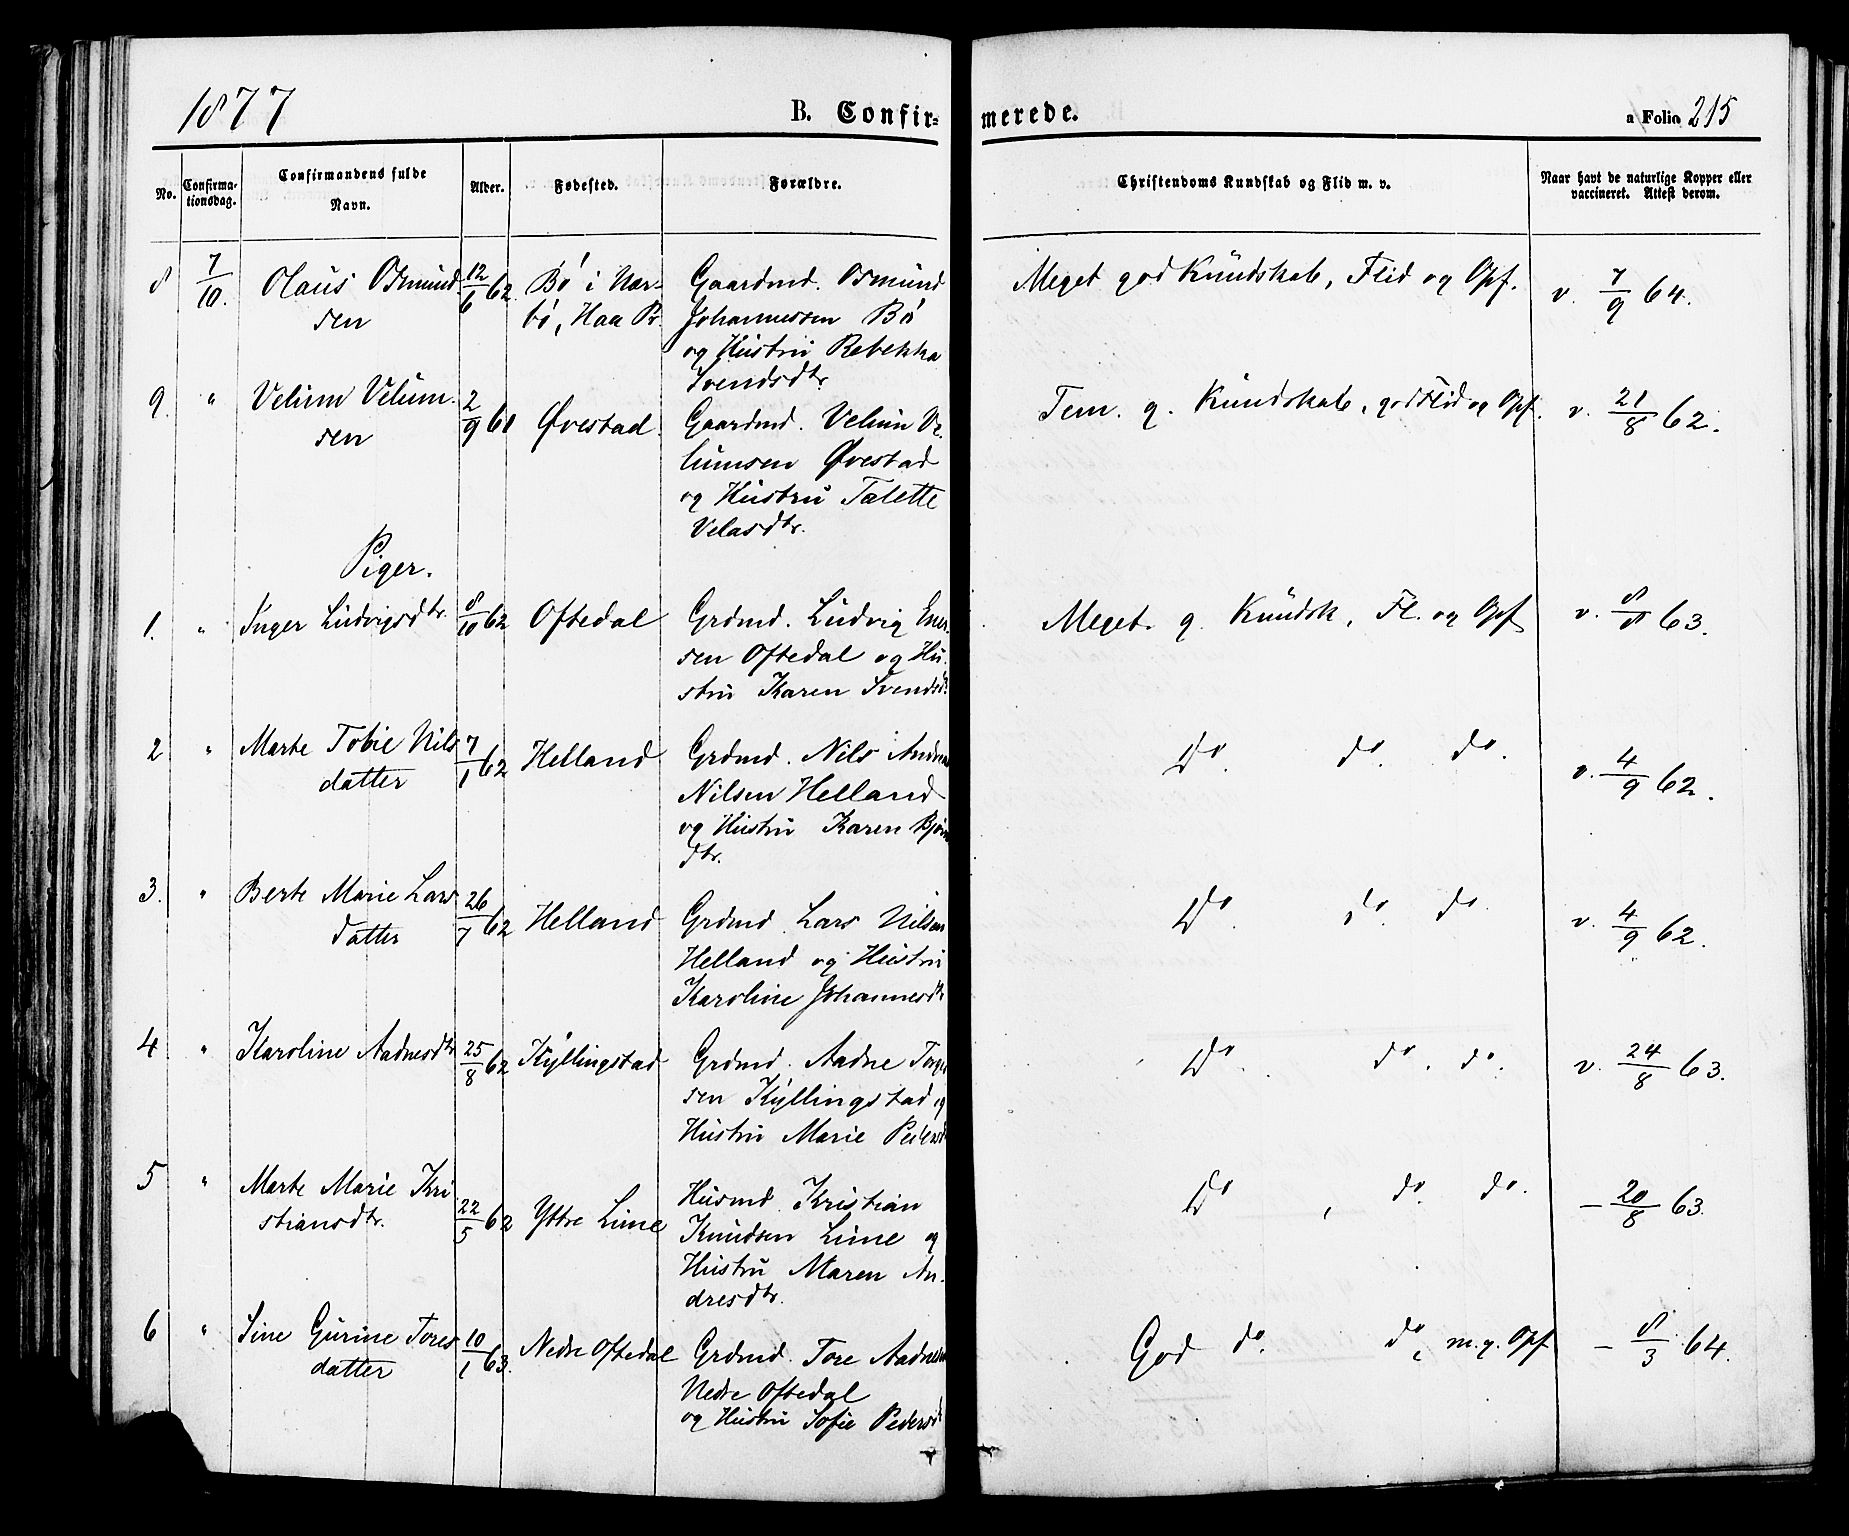 1877
B. Confir-
merede.
a Folio 215
No.
Confirma-
tionsdag.
Confirmandens fulde
Navn.
Alder.
Fødested.
Forældre.
Christendoms Kundskab og Flid m. v.
Naar havt de naturlige Kopper eller
vaccineret. Attest derom.
8 7/10. Olaus Osmund 12/6 62. Bø i Nær- Gaardmd. Osmund Meget god Kundskab, Flid og Opf. v. 7/9 64.
sen bø, Haa Pr. Johannessen Bø
og Hustru Rebekka
Svendsdtr.
9. " Velum Velum- 2/9 61 Øvestad. Gaardmd. Velum Ve- Tem. g. Kundskab, god Flid og Opf. v. 21/8 62.
sen lumsen Øvestad
og Hustru Talette
Velasdtr.
Piger.
1. " Inger Ludvigsdtr. 8/10 62 Oftedal Grdmd. Ludvig Ener- Meget. g. Kundsk, Fl. og Opf v. 8/8 63.
sen Oftedal og Hu-
stru Karen Svendsd
2 " Marte Tobie Nils 7/1 62 Helland Grdmd. Nils Andrea Do. do. do. v. 4/9 62.
datter Nilsen Helland
og Hustru Karen Bjørn
dtr.
3. " Berte Marie Lars 26/7 62 Helland Grdmd. Lars Nilsen Do. do. do. v. 4/9 62.
datter Helland og Hustru
Karoline Johannesdtr
4 " Karoline Aadnesdtr 25/8 62 Kyllingstad Grdmd. Aadne Torge Do. do. do. v. 24/8 63.
sen Kyllingstad og
Hustru Marie Pedersd
5 " Marte Marie Kri 22/5 62 Ytre Lime Husmd. Kristian Do do. do. - 20/8 63.
stiansdtr. Knudsen Lime og
Hustru Maren An-
dresdtr.
6 " Sine Gurine Tores 10/1 63. Nedre Oftedal Grdmd. Tore Aadnesen God do. do, m.g. Opf - 8/3 64.
datter Nedre Oftedal
og Hustru Sofie Pedersd